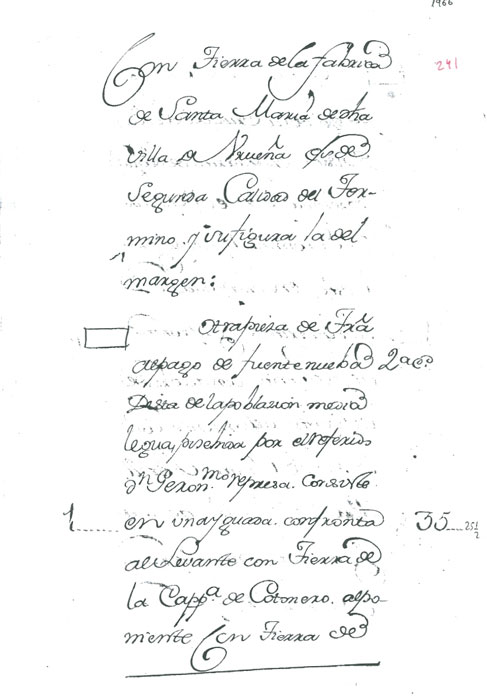 1966
241
Con Tierra de la fabrica
de Santa Maria de dha
villa de Urueña es de
Segunda Calidad del Ter-
mino y su figura la del
margen:
Otra pieza de Tra
al pago de fuente nueba 2ª cð
Dista de la poblazion media
legua, posehida por el referido
dn Geronmo represa. Consiste
1 en una yguada. confronta 35 251/2
al Levante con Tierra de
la Cappª de Cotonero. al po-
niente Con Tierra de